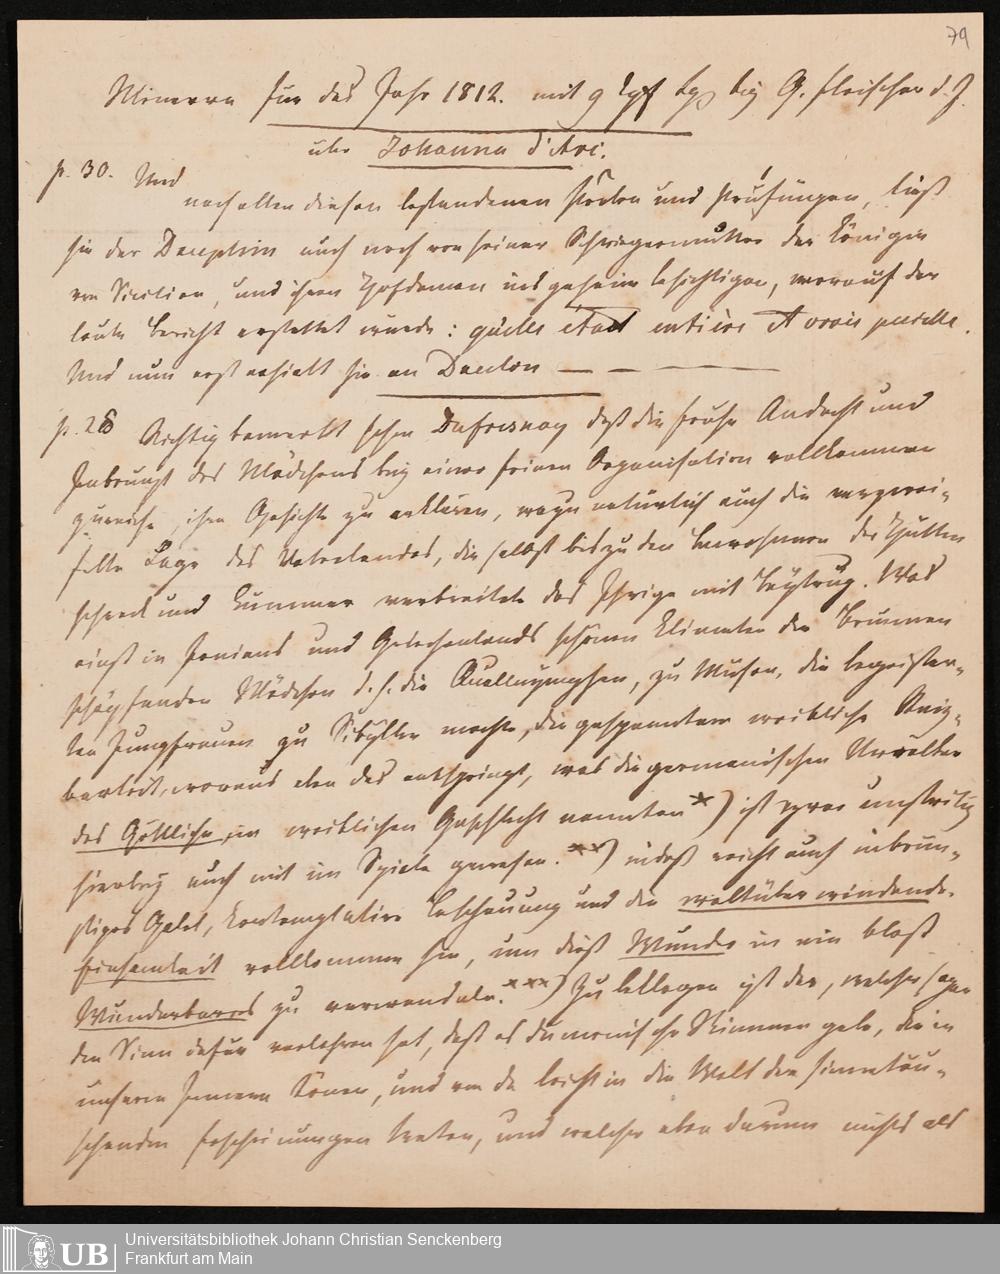 79
Minerva für das Jahr 1812. mit 9 Kpf Lpz bey G. Fleischer d. J.
über Johanna d'Arc.
p. 30. Und
nach allen diesen bestandenen Proben und Prüfungen, ließ
sie der Dauphin auch noch von seiner Schwiegermutter der Königin
von Sicilien, und ihren Hofdamen insgeheim besichtigen, worauf der
laute Bericht erstattet wurde: qu'elle etait entière et vraie pucelle.
Und nun erst erhielt sie an Daulon — — —
p. 28 Richtig bemerkt schon Dufresnoy daß die frühe Andacht und
Inbrunst des Mädchens bey einer feinen Organisation vollkommen
zureiche, ihre Gesichte zu erklären, wozu natürlich auch die verzwei-
felte Lage des Vaterlandes, die selbst bis zu den Bewohnern der Hütten
Schreck und Kummer verbreitete das Ihrige mit beytrug. Was
einst in Ioniens und Griechenlands schönen Klimaten die Brunnen
schöpfenden Mädchen d. h. die Quellnymphen, zu Musen, die begeister-
ten Jungfrauen zu Sibyllen machte, die gespanntere weibliche Reiz-
barkeit, woraus eben das entspringt, was die germanischen Urvölker
das Göttliche im weiblichen Geschlecht nannten *) ist zwar unstreitig
hierbey auch mit im Spiele gewesen. **) indeß reicht auch inbrün-
stiges Gebet, kontemplative Beschauung und die weltüberwindende
Einsamkeit vollkommen hin, um dieß Wunder in ein bloß
Wunderbares zu verwandeln. ***) Zu beklagen ist der, welcher sogar
den Sinn dafür verlohren hat, daß es dämonische Stimmen gebe, die in
unserm Innern tönen, und von da leicht in die Welt der sinnetäu-
schenden Erscheinungen treten, und welcher eben darum nichts als
UB
Universitätsbibliothek Johann Christian Senckenberg
Frankfurt am Main